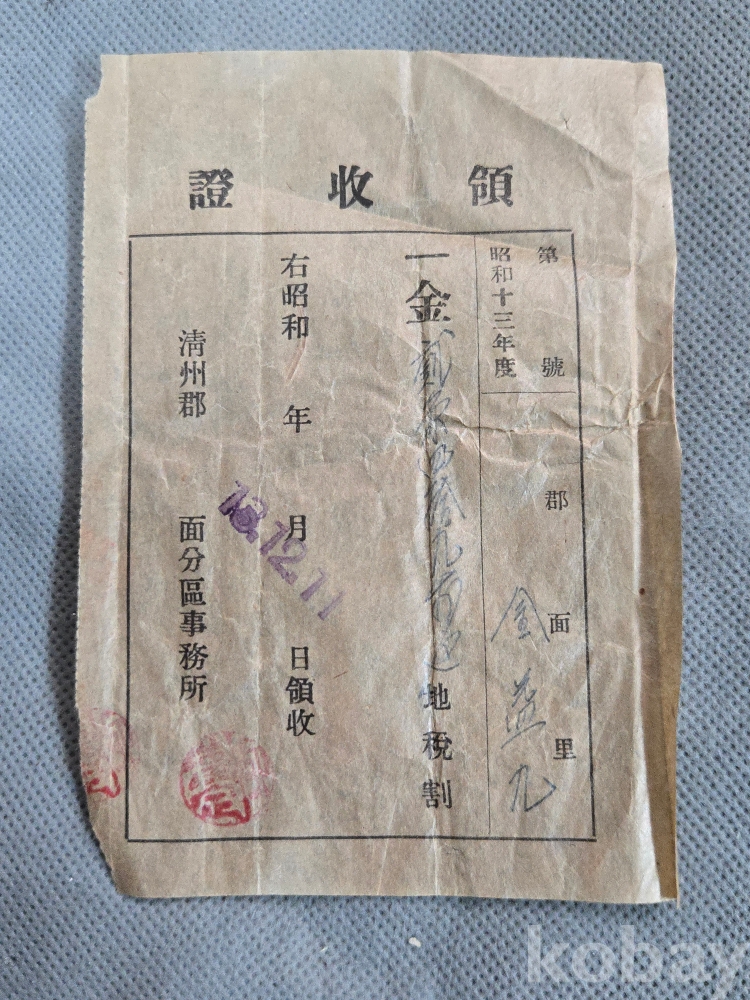 領收證
第 號 郡 面 里
昭和十三年度 金益九
一金 地稅割
右昭和 年 月 日領收
13.12.11
清州郡 面分區事務所
kobay